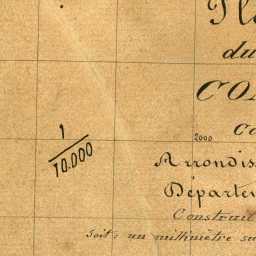 du
1
10.000
2000
Arrondis
Départe
Construi
Soit: un millimètre su